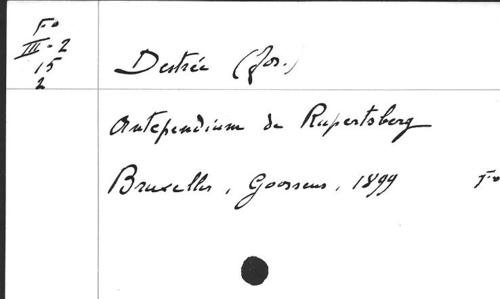 Fo
III-2
15
2
Destrée (Jos.)
Antependium de Rupertsberg
Bruxelles, Goossens, 1899 Fo